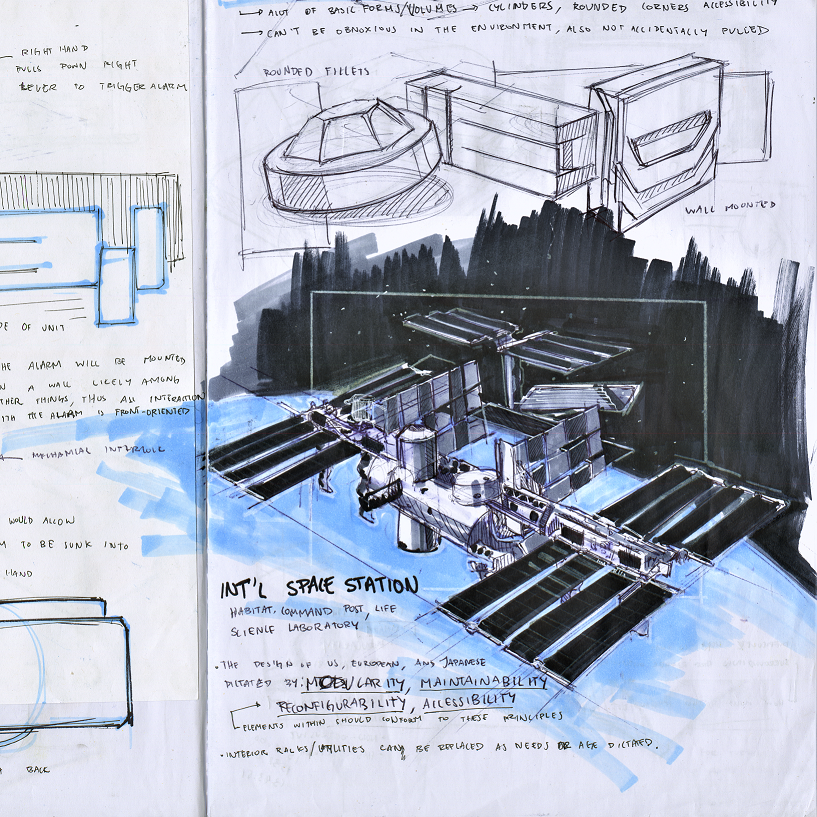 RIGHT HAND
PULLS DOWN RIGHT
LEVER TO TRIGGER ALARM
DE OF UNIT
HE ALARM WILL BE MOUNTED
N A WALL LIKELY AMONG
THER THINGS, THUS ALL INTERACTION
ITH THE ALARM IS FRONT-ORIENTED
MECHANICAL INTERLOCK
WOULD ALLOW
M TO BE SUNK INTO
HAND
BACK
→ ALOT OF BASIC FORMS/VOLUMES → CYLINDERS, ROUNDED CORNERS ACCESSIBILITY
→ CAN'T BE OBNOXIOUS IN THE ENVIRONMENT, ALSO NOT ACCIDENTALLY PULLED
ROUNDED FILLETS
WALL MOUNTED
INT'L SPACE STATION
HABITAT, COMMAND POST, LIFE
SCIENCE LABORATORY
• THE DESIGN OF US, EUROPEAN, AND JAPANESE
DICTATED BY: MODULARITY, MAINTAINABILITY
RECONFIGURABILITY, ACCESSIBILITY
ELEMENTS WITHIN SHOULD CONFORM TO THESE PRINCIPLES
• INTERIOR RACKS/UTILITIES CAN BE REPLACED AS NEEDS OR AGE DICTATED.